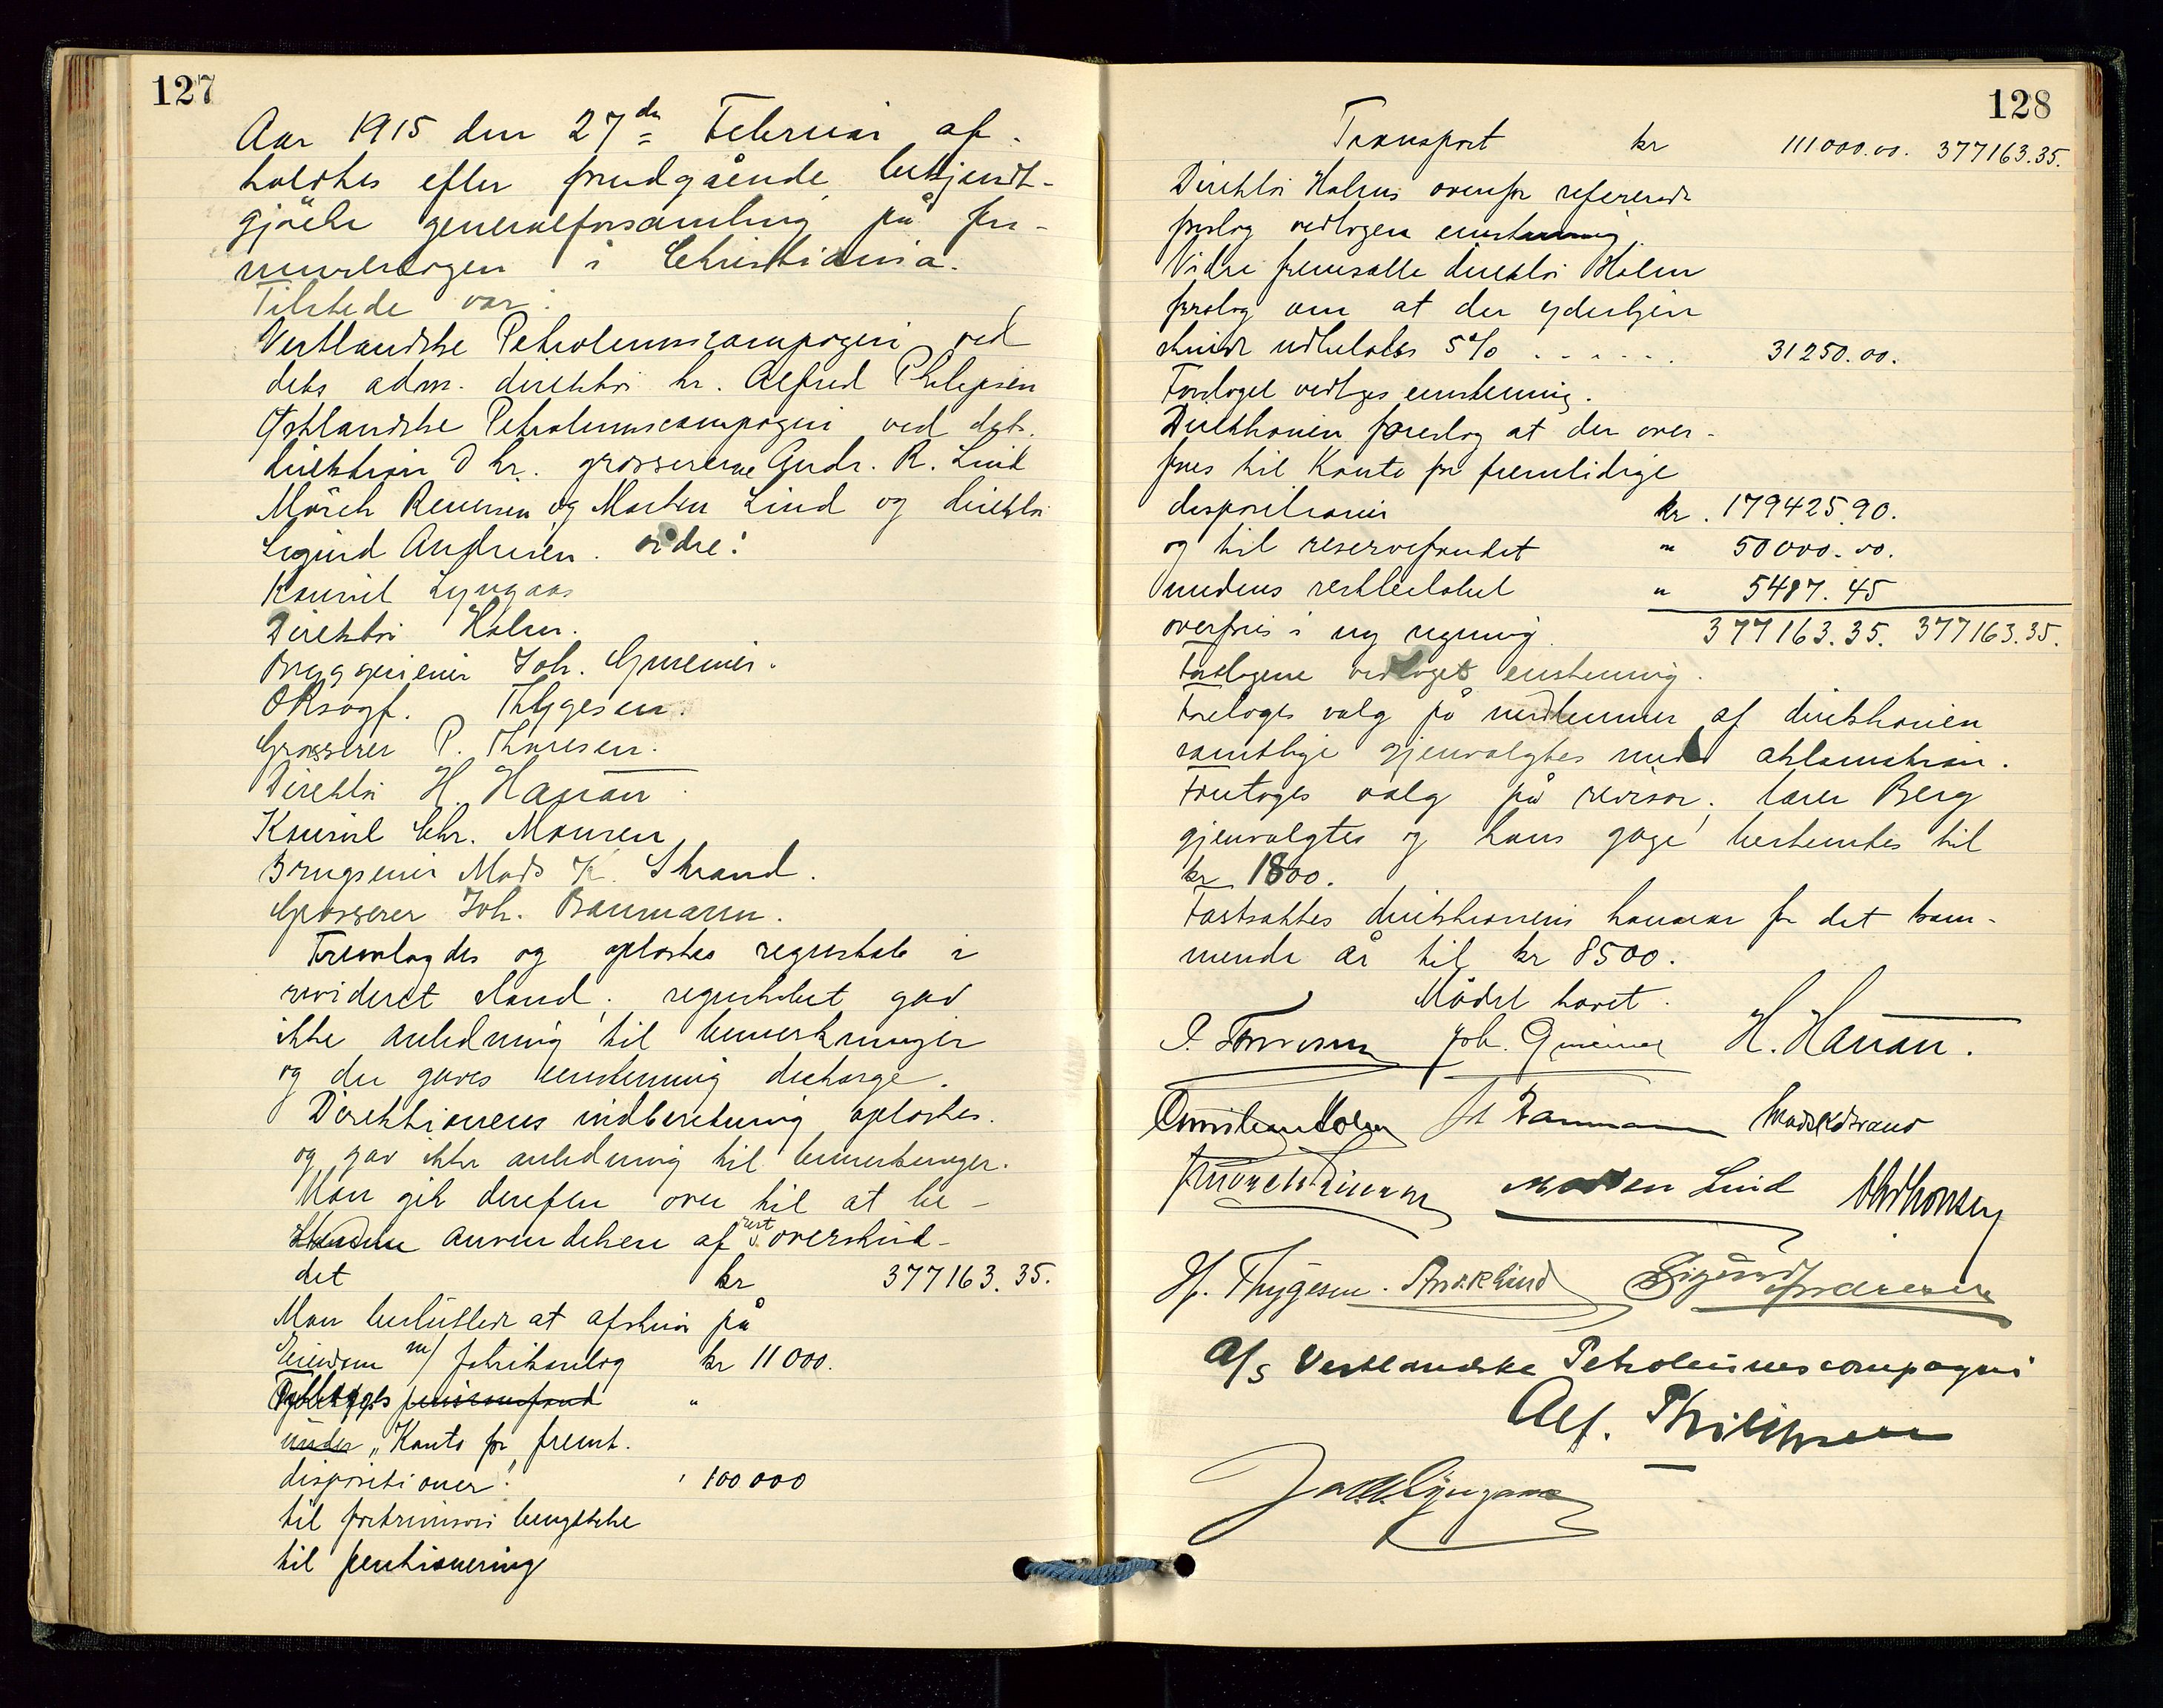 127
Aar 1915 den 27de Februar af-
holdtes efter forudgående bekjendt-
gjörelse generalforsamling på for-
murerlogen i Christiania.
Tilstede var:
Vestlandske Petroleumscompagni ved
dets adm. direktör hr. Alfred Philipsen
Østlandske Petroleumscompagni ved dets
direktion D hr. grossererne Andr. R. Lind
Mörch Reiersen og Morten Lind og direktör
Sigurd Andresen. vidre:
Konsul Lyngaas
Direktör Holm.
Bryggerieier Joh. Griener.
ORsagf. Thygesen.
Grosserer P. Thoresen.
Direktör H. Hanan.
Konsul Chr. Monsen
Brugseier Mads K. Strand.
Grosserer Joh. Baumann.
Fremlagdes og oplæstes regnskab i
revideret stand; regnskabet gav
ikke anledning til bemerkninger
og der gaves enstemmig decharge.
Direktionens indberetning oplæstes
og gav ikke anledning til bemerkninger.
Man gik derefter over til at be-
stemme anvendelsen af rest overskud-
det kr 377163.35.
Man besluttede at afskrive på
Eiendom m/ fabrikanlæg kr 11000.
pensionsfond "
under "Konto for fremt.
dispositioner". " 100000
til fortrinsvis benyttelse
til pensionering
128
Transport kr 111000.00. 377163.35.
Direktör Holms ovenfor refererede
forslag vedtogen enstemmig.
Vidre fremsatte direktör Holm
forslag om at der yderligere
skulde udbetales 5% . . . . . . 31250.00.
Forslaget vedtoges enstemmig.
Direktionen foreslog at der over-
føres til Konto for fremtidige
dispositioner kr. 179425.90.
og til reservefondet " 50000.00.
medens restbeløbet " 5487.45
overføres i ny regning. 377163.35. 377163.35.
Forslagene vedtoges enstemmig.
Foretoges valg på medlemmer af direktionen
samtlige gjenvalgtes med aklamation.
Foretoges valg på revisor; Berg
gjenvalgtes og hans gage bestemtes til
kr 1800.
Fastsattes direktionens honorar for det kom-
mende år til kr 8500.
Mödet hævet.
P. Thoresen Joh. Griener H. Hanan.
Christian Holm Joh Baumann Mads K Strand
Mörch Reiersen Morten Lind Chr Monsen
H. Thygesen. Andr R Lind Sigurd Andresen
A/S Vestlandske Petroleumscompagni
Alf. Philipsen
Lyngaas